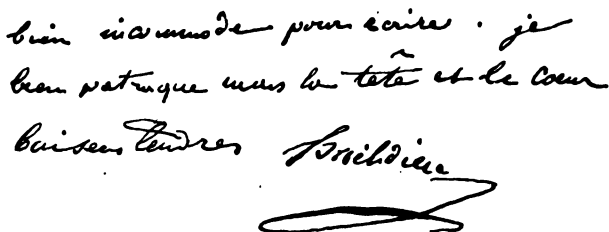 bien incommode pour écrire. je
bien patraque mais la tetê et le coeur
baisers tendres Boieldieu